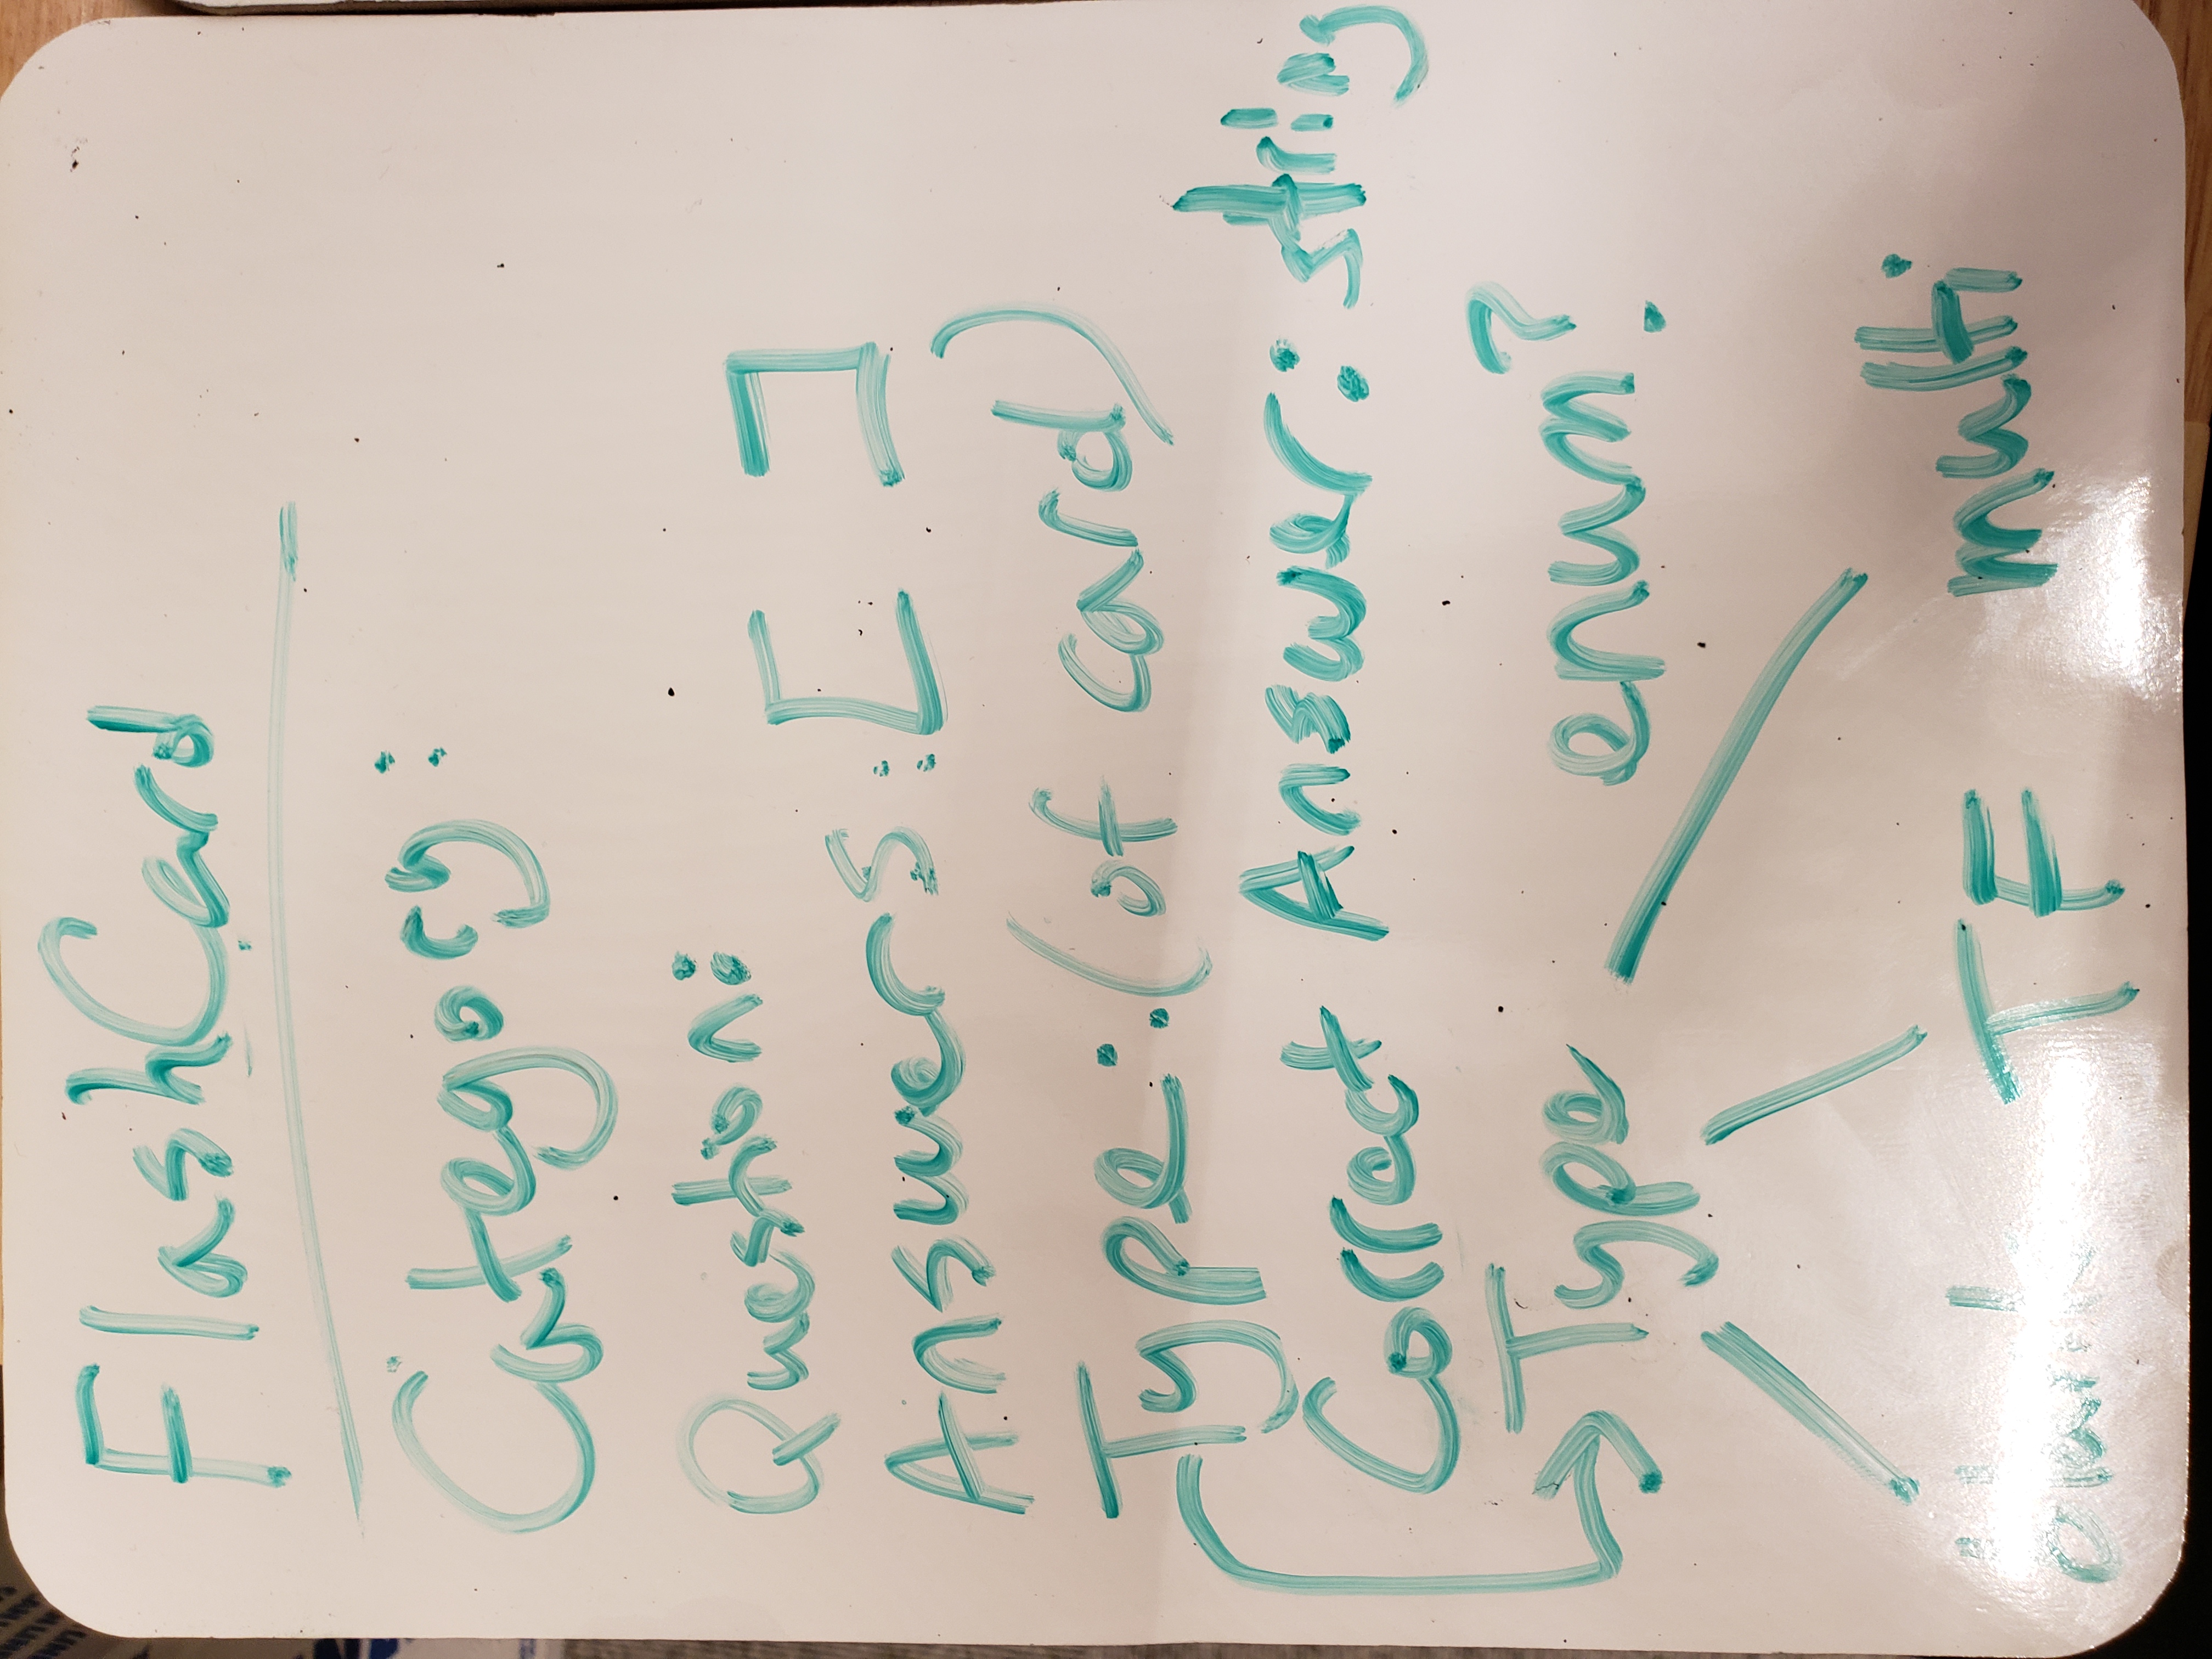 FlashCard
Category:
Question:
Answers: [ ]
Type: (of card)
Correct Answer: string
Type enum?
blank TF multi